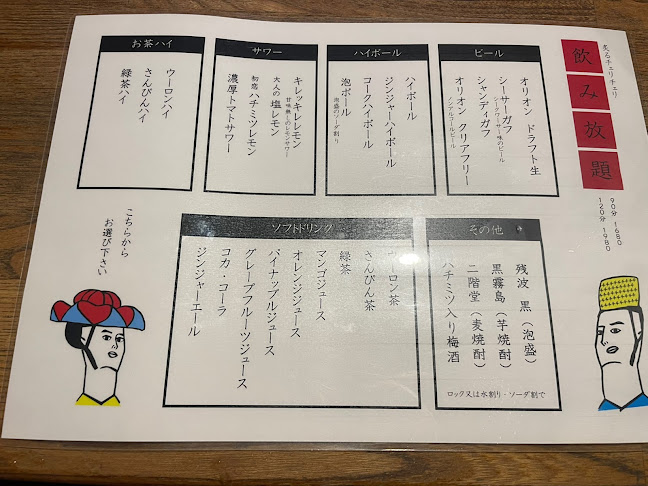 炙るチェリチェリ
飲み放題
90分 1680
120分 1980
ビール
オリオン ドラフト生
シーサーガフ
シークワーサー味のビール
シャンディガフ
オリオン クリアフリー
ノンアルコールビール
ハイボール
ハイボール
ジンジャーハイボール
コークハイボール
泡ボール
泡盛のソーダ割り
サワー
キレッキレレモン
甘味無しのレモンサワー
大人の塩レモン
初恋ハチミツレモン
濃厚トマトサワー
お茶ハイ
ウーロンハイ
さんぴんハイ
緑茶ハイ
その他
残波 黒(泡盛)
黒霧島(芋焼酎)
二階堂(麦焼酎)
ハチミツ入り梅酒
ロック又は水割り・ソーダ割で
ソフトドリンク
ウーロン茶
さんぴん茶
緑茶
マンゴジュース
オレンジジュース
パイナップルジュース
グレープフルーツジュース
コカ・コーラ
ジンジャーエール
こちらから
お選び下さい